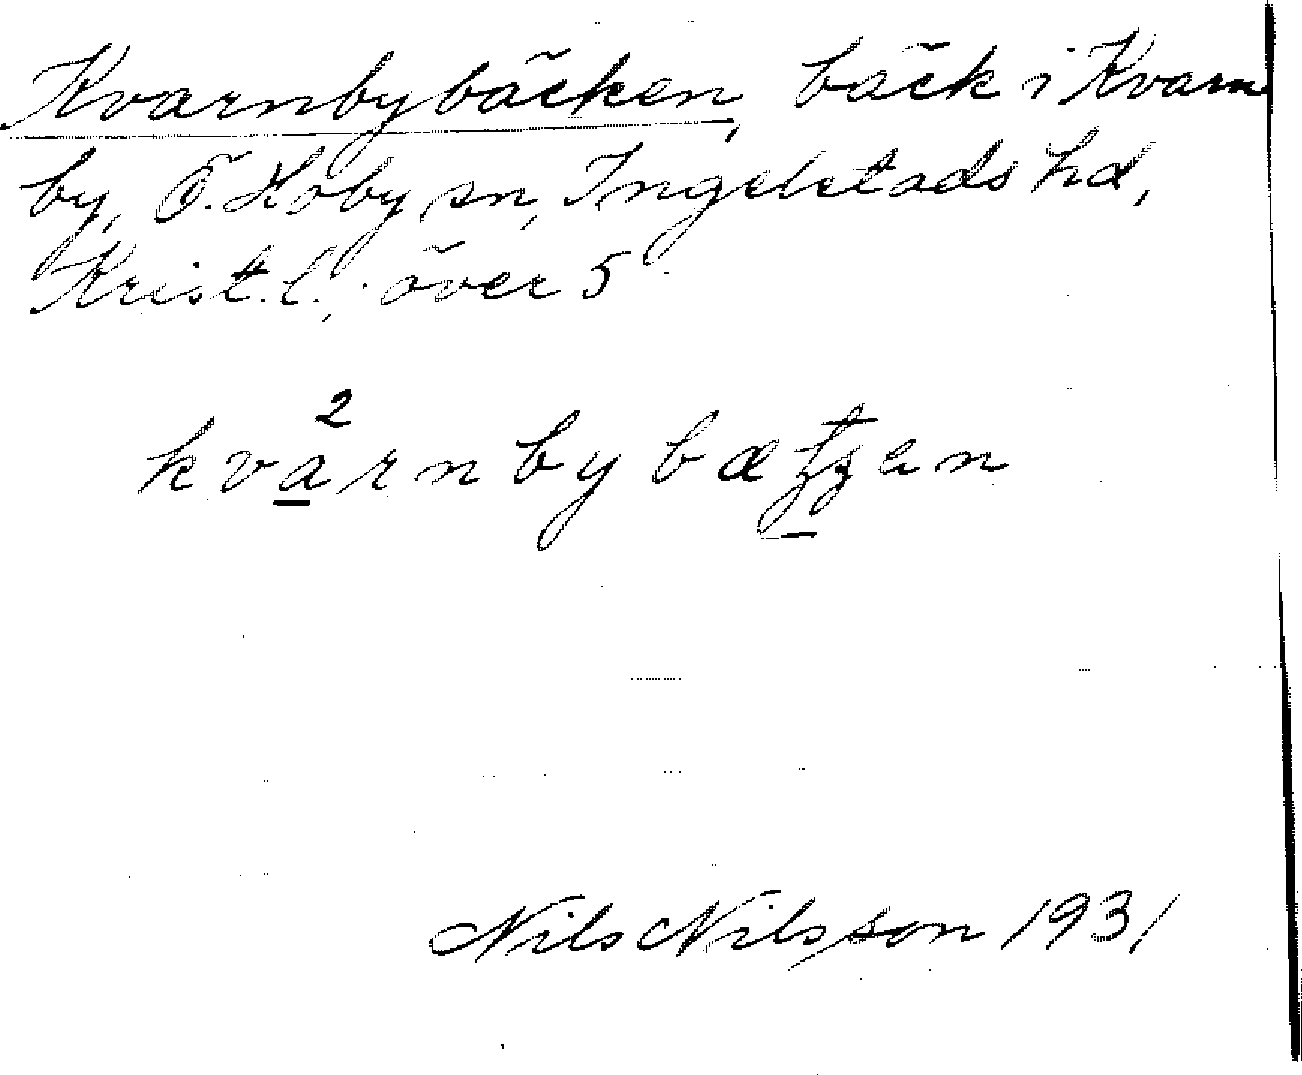 Kvarnbybäcken, bäck i Kvarn
by, Ö. Hoby sn, Ingelstads hd,
Krist. l., över 5
2
Nils Nilsson 1931